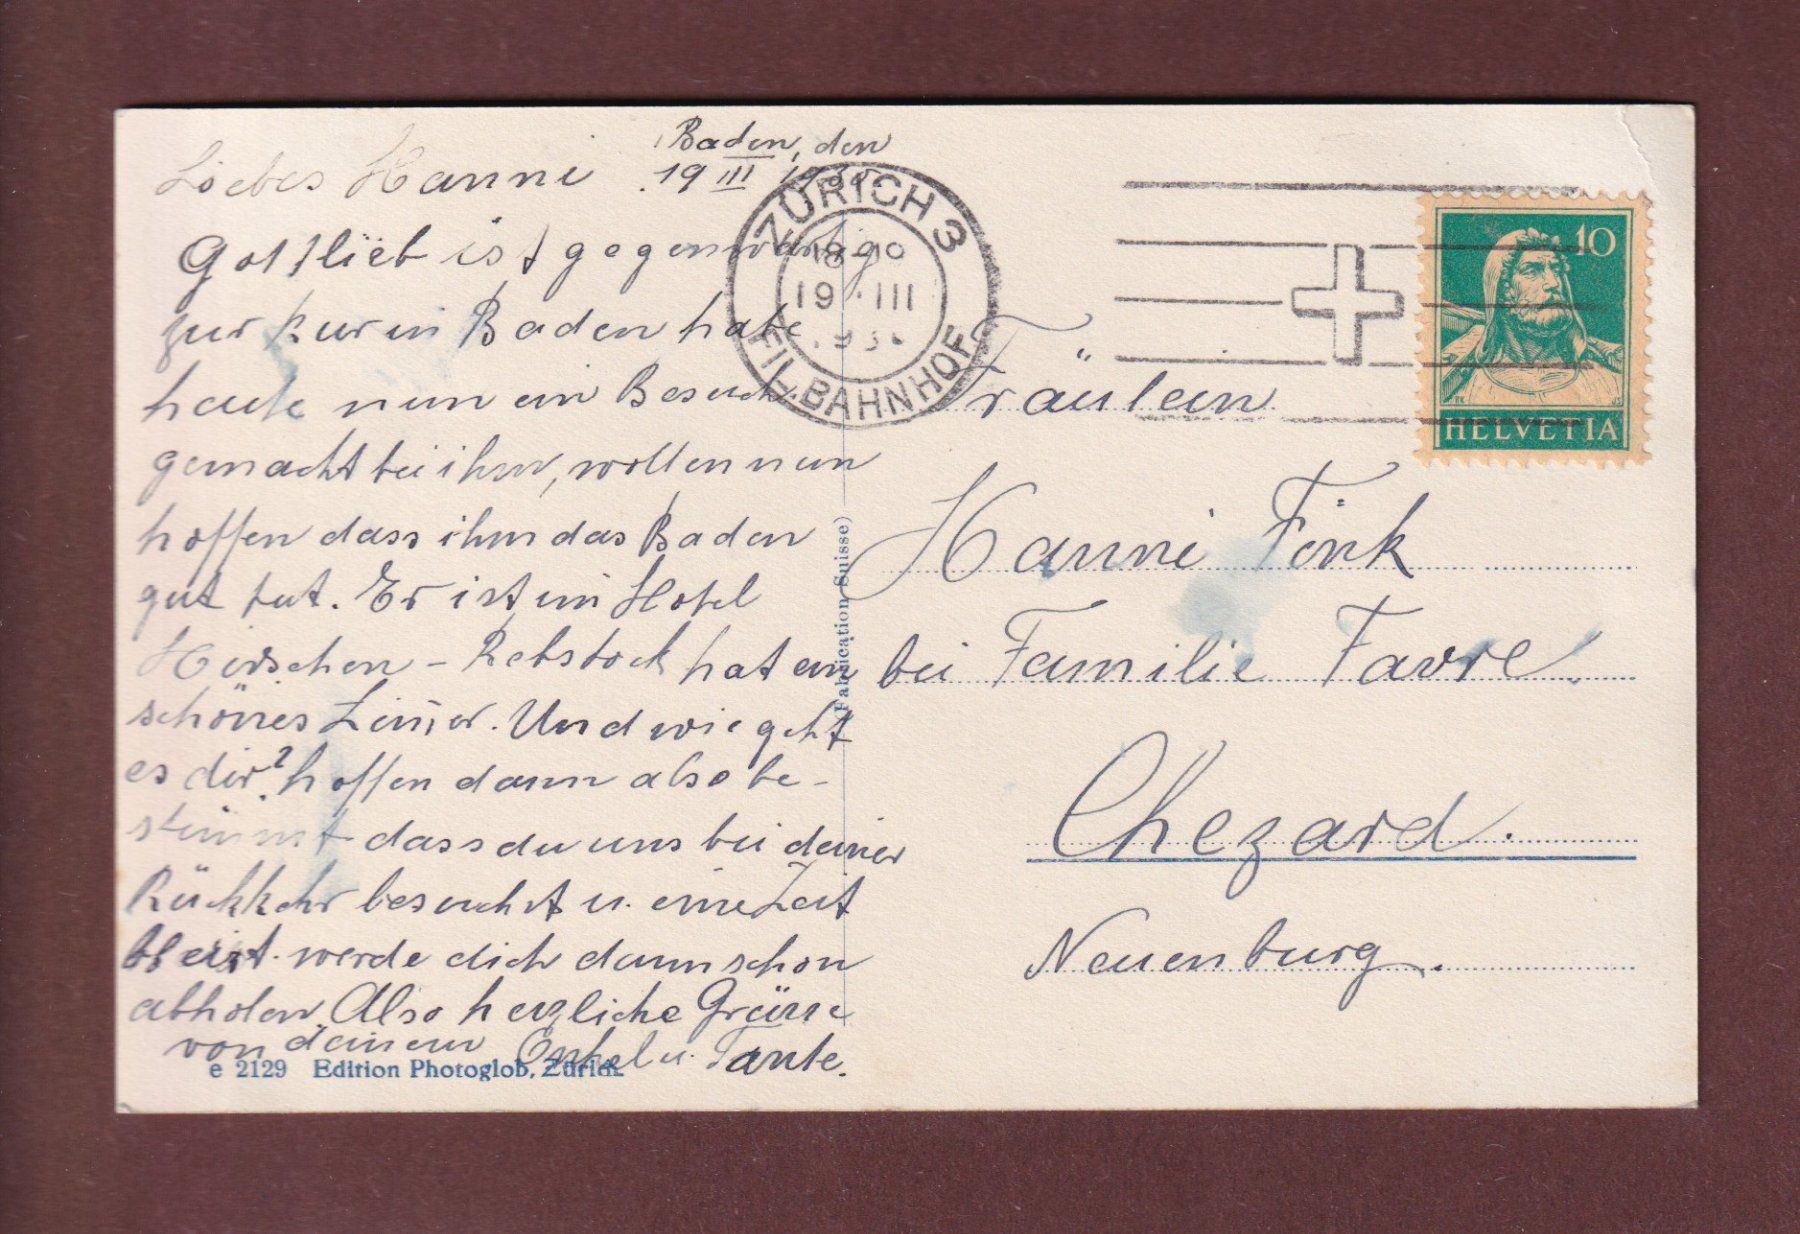 Baden, den
19 III
Liebes Hanni
Gottlieb ist gegenwärtig
zur Kur in Baden habe
heute nun ein Besuch
gemacht bei ihm, wollen nun
hoffen dass ihm das Baden
gut tut. Er ist im Hotel
Hirschen - Rebstock hat ein
schönes Zim̄er. Und wie geht
es dir? hoffen dann also be-
stimmt dass du uns bei deiner
Rückkehr besuchst u. eine Zeit
bleibst. werde dich dann schon
abholen. Also herzliche Grüsse
von deinem Onkel u. Tante.
e 2129 Edition Photoglob, Zürich.
Fabrication Suisse)
ZÜRICH 3
19 . III
FIL. BAHNHOF
10
HELVETIA
Fräulein
Hanni Fink
bei Familie Favre.
Chezard.
Neuenburg.